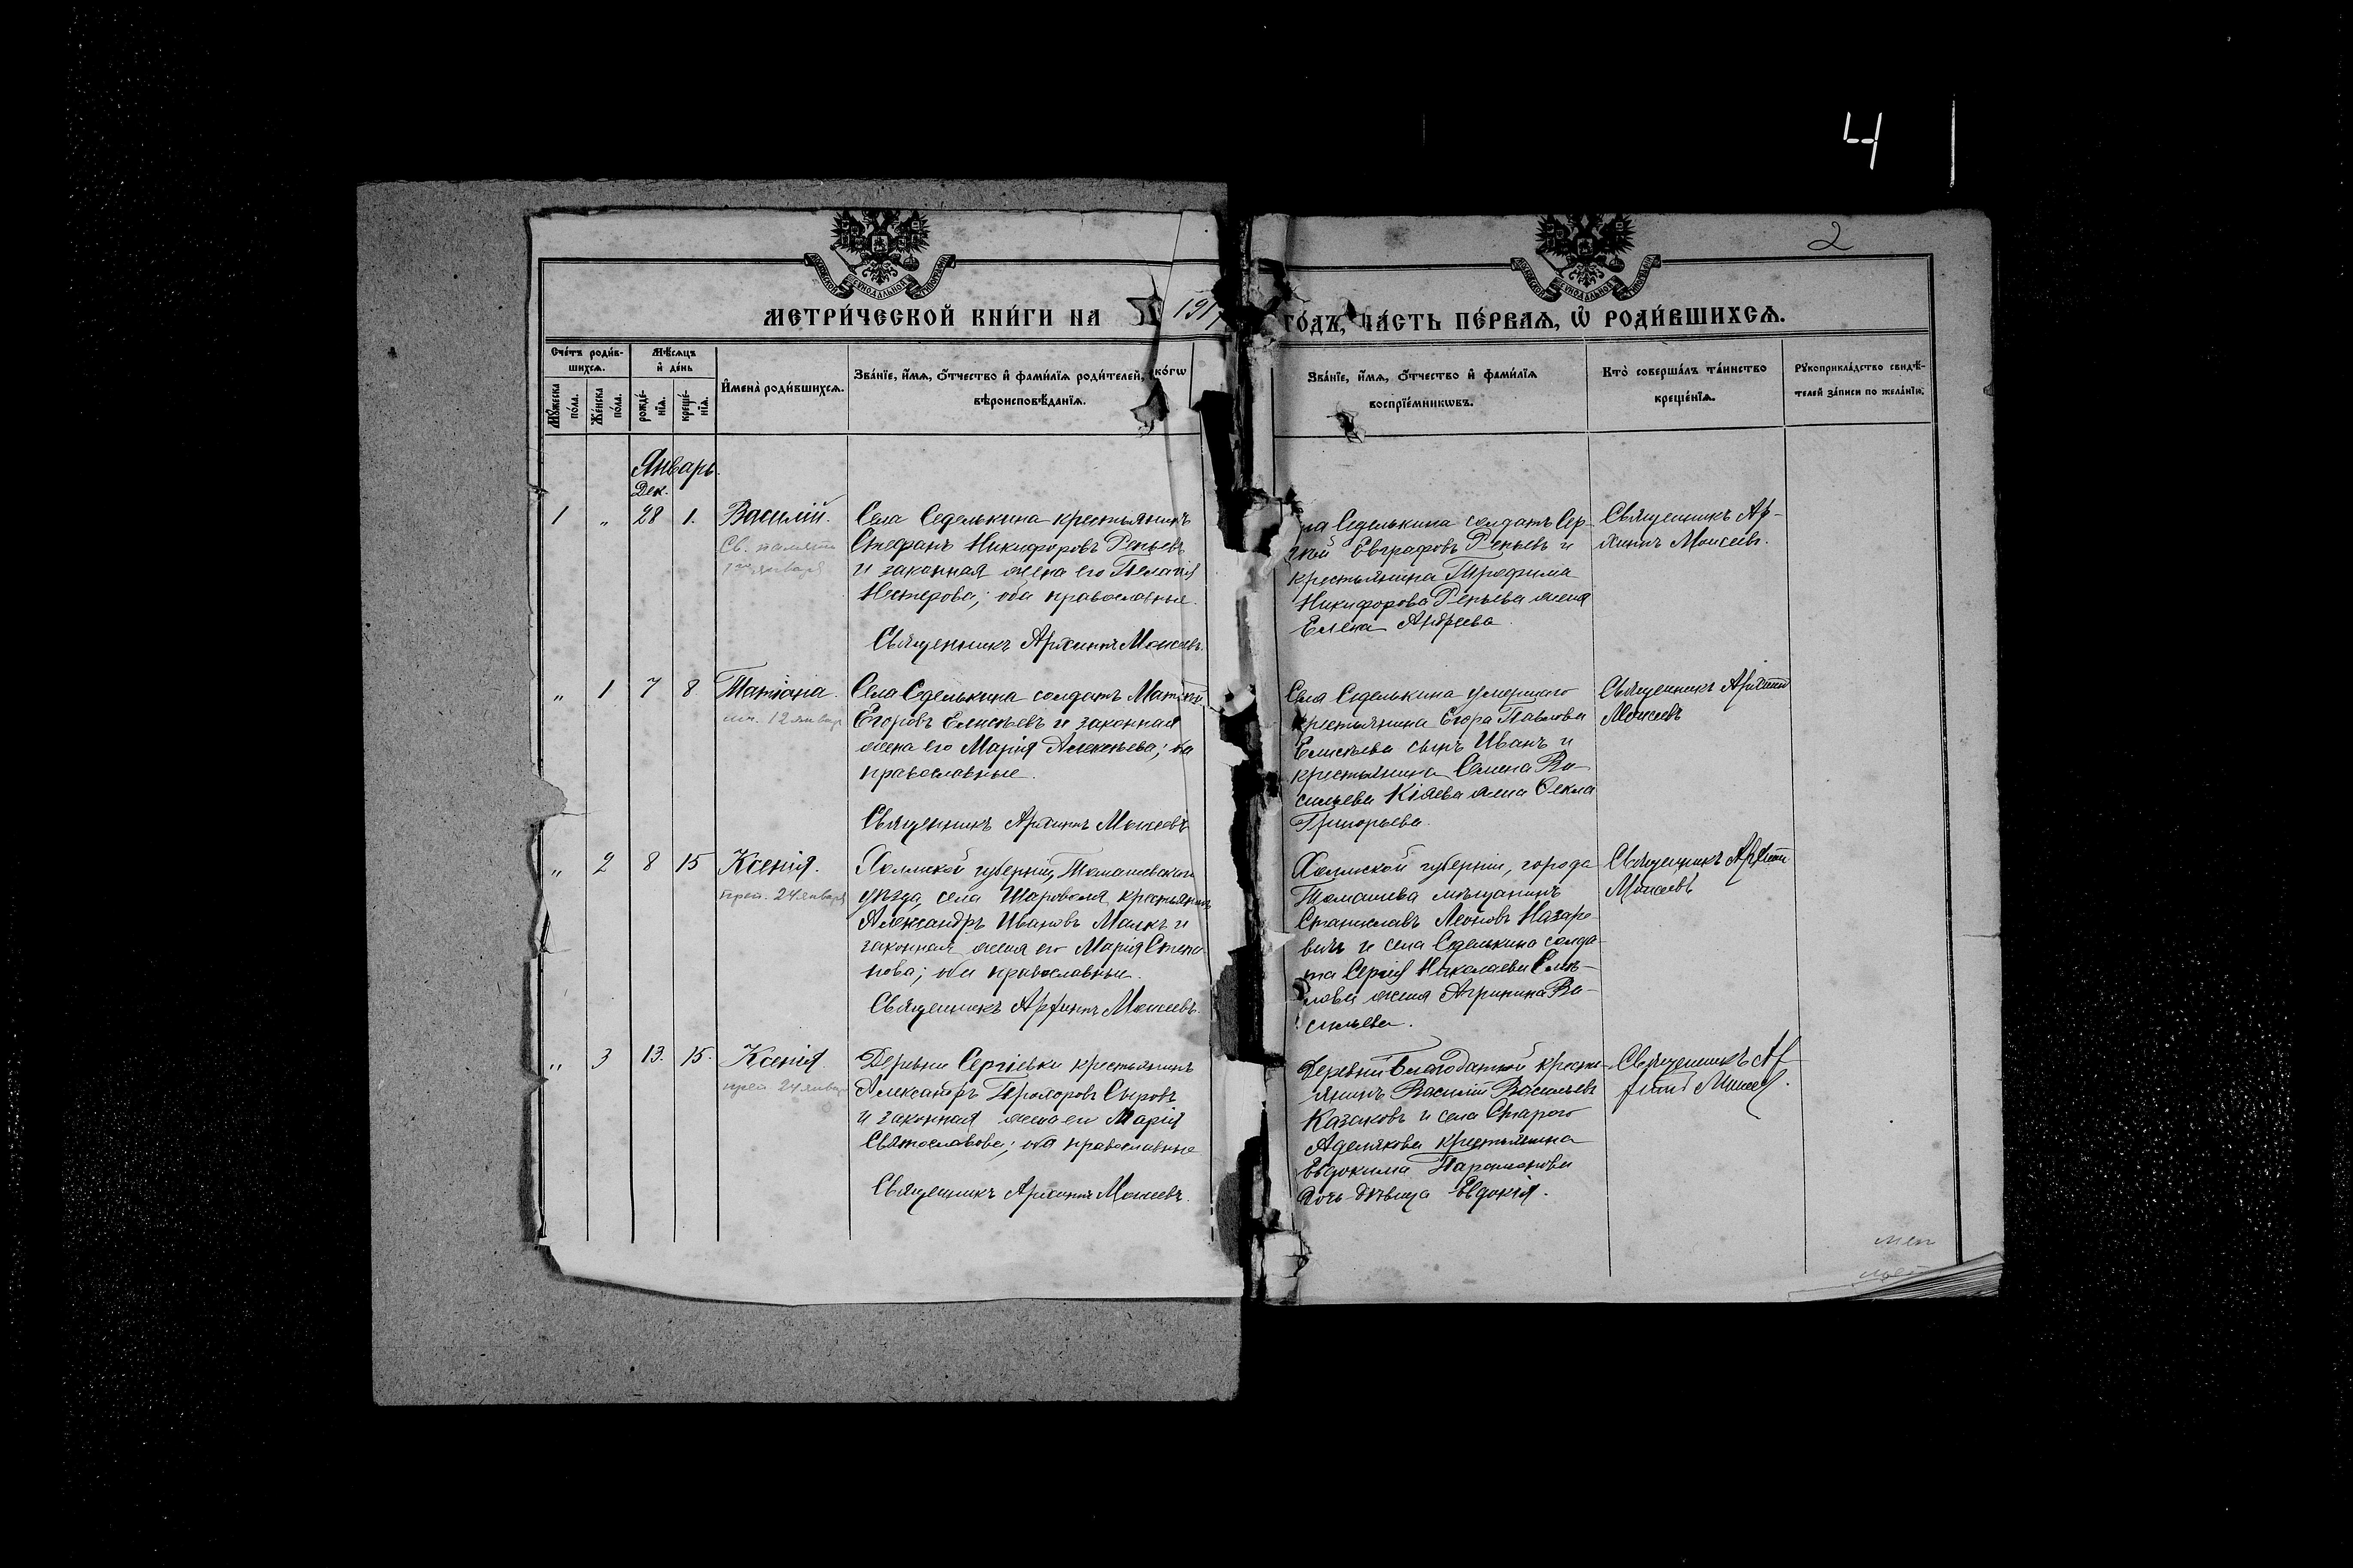 4
2
МОСКОВСКОЙ СѴНОДАЛЬНОЙ ТИПОГРАФІИ
МОСКОВСКОЙ СѴНОДАЛЬНОЙ ТИПОГРАФІИ
МЕТРИ́ЧЕСКОЙ КНИ́ГИ НА 1917 ГО́ДЪ, ЧА́СТЬ ПЕ́РВАѦ, Ѡ РОДИ́ВШИХСѦ.
Сче́тъ роди́в-
шихсѧ.
Мѣ́сѧцъ
и҆ де́нь
Мꙋ́жеска
по́ла.
Же́нска
по́ла.
рожде́-
нїѧ.
креще́-
нїѧ.
И҆мена̀ роди́вшихсѧ.
Зва́нїе, и҆́мѧ, ѻ҆́тчество и҆ фами́лїѧ роди́телей, и҆ ко́гѡ
вѣроисповѣ́данїѧ.
Зва́нїе, и҆́мѧ, ѻ҆́тчество и҆ фами́лїѧ
воспрїе́мникѡвъ.
Кто̀ соверша́лъ та́инство
креще́нїѧ.
Рꙋкоприкла́дство свидѣ́-
телей за́писи по жела́нїю.
Январь.
Дек.
1 „ 28 1.
Василій.
Св. памяти
1го января
Села Седелькина крестьянинъ
Стефанъ Никифоровъ Репьевъ
и законная жена его Пелагія
Нестерова; оба православные.
Священникъ Архиппъ Моисеевъ.
Села Седелькина солдатъ Сер-
гѣй Евграфовъ Репьевъ и
крестьянина Трофима
Никифорова Репьева жена
Елена Андреева.
Священникъ Ар-
хиппъ Моисеевъ.
„ 1 7 8
Татіана.
мч. 12 январ
Села Седелькина солдатъ Матѳей
Егоровъ Елисѣевъ и законная
жена его Марія Алексѣева; оба
православные.
Священникъ Архиппъ Моисеевъ
Села Седелькина умершаго
крестьянина Егора Павлова
Елисѣева сынъ Иванъ и
крестьянина Семена Ва-
сильева Кіяева жена Ѳекла
Григорьева.
Священникъ Архиппъ
Моисеевъ
„ 2 8 15
Ксенія.
преп. 24 января
Холмской губерніи, Томашевскаго
уѣзда, села Шаровола крестьянинъ
Александръ Ивановъ и
законная жена его Марія Степа-
нова; оба православные.
Священникъ Архиппъ Моисеевъ.
Холмской губерніи, города
Томашева мѣщанинъ
Станиславъ Леоновъ Назаре-
вичъ и села Седелькина солда-
та Сергія Николаева
жена Агрипина Ва-
сильева.
Священникъ Архиппъ
Моисеевъ
„ 3 13. 15.
Ксенія
преп. 24 январ
Деревни Сергіевки крестьянинъ
Александръ Прохоровъ Сыровъ
и законная жена его Марія
Святославова; оба православные
Священникъ Архиппъ Моисеевъ.
Деревни Благодатной кресть-
янинъ Василій Васильевъ
Казаковъ и села Стараго
Аделякова крестьянина
Евдокима Парамонова
дочь-дѣвица Евдокія.
Священникъ Ар-
хиппъ Моисеевъ.